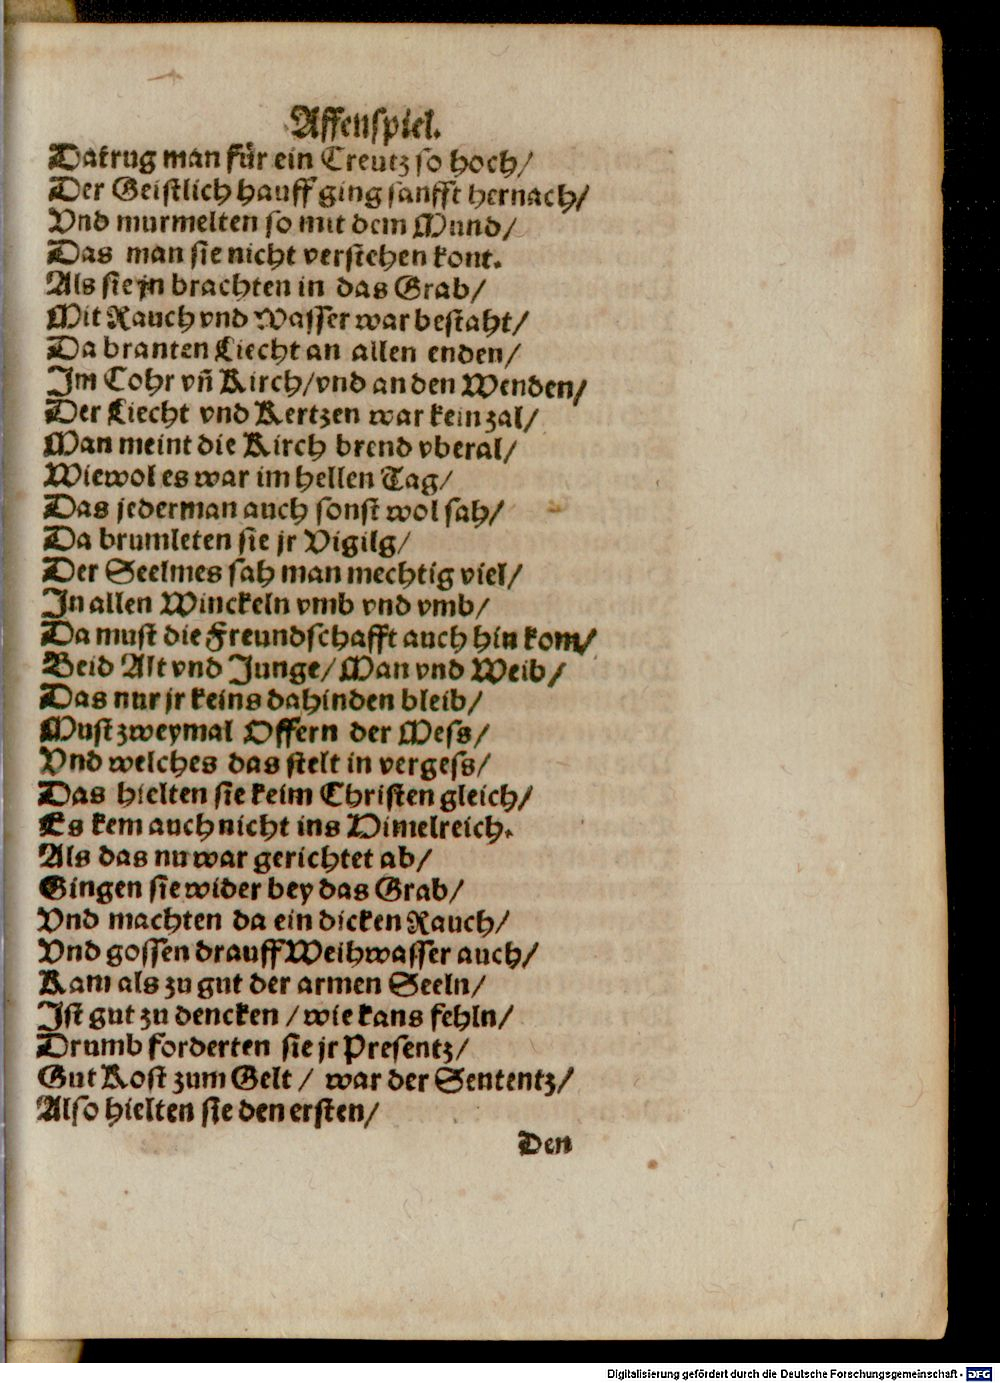 Affenspiel.
Da trug man für ein Creutz so hoch/
Der Geistlich hauff ging sanfft hernach/
Vnd murmelten so mit dem Mund/
Das man sie nicht verstehen kont.
Als sie jn brachten in das Grab/
Mit Rauch vnd Wasser war bestaht/
Da branten Liecht an allen enden/
Im Cohr vñ Kirch/vnd an den Wenden/
Der Liecht vnd Kertzen war kein zal/
Man meint die Kirch brend vberal/
Wiewol es war im hellen Tag/
Das jederman auch sonst wol sah/
Da brumleten sie jr Vigilg/
Der Seelmes sah man mechtig viel/
In allen Winckeln vmb vnd vmb/
Da must die Freundschafft auch hin kom/
Beid Alt vnd Junge/ Man vnd Weib/
Das nur jr keins dahinden bleib/
Must zweymal Offern der Mess/
Vnd welches das stelt in vergess/
Das hielten sie keim Christen gleich/
Es kem auch nicht ins Himelreich.
Als das nu war gerichtet ab/
Gingen sie wider bey das Grab/
Vnd machten da ein dicken Rauch/
Vnd gossen drauff Weihwasser auch/
Kam als zu gut der armen Seeln/
Ist gut zu dencken / wie kans fehln/
Drumb forderten sie jr Presentz/
Gut Kost zum Gelt / war der Sententz/
Also hielten sie den ersten/
Den
Digitalisierung gefördert durch die Deutsche Forschungsgemeinschaft - DFG